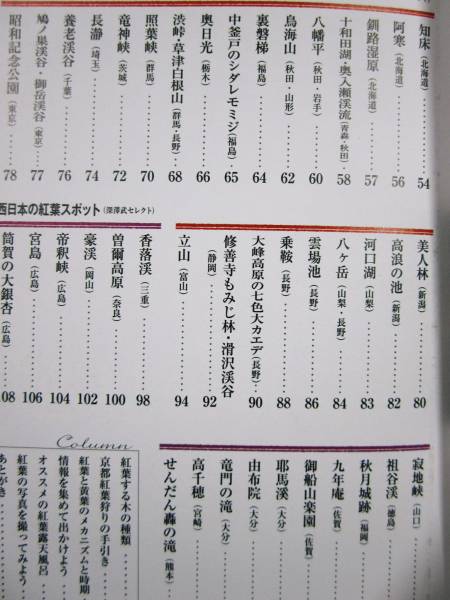 知床（北海道）……54
阿寒（北海道）……56
釧路湿原（北海道）……57
十和田湖・奥入瀬渓流（青森・秋田）……58
八幡平（秋田・岩手）……60
鳥海山（秋田・山形）……62
裏磐梯（福島）……64
中釜戸のシダレモミジ（福島）……65
奥日光（栃木）……66
渋峠・草津白根山（群馬・長野）……68
照葉峡（群馬）……70
竜神峡（茨城）……72
長瀞（埼玉）……74
養老渓谷（千葉）……76
鳩ノ巣渓谷・御岳渓谷（東京）……77
昭和記念公園（東京）……78
美人林（新潟）……80
高浪の池（新潟）……82
河口湖（山梨）……83
八ヶ岳（山梨・長野）……84
雲場池（長野）……86
乗鞍（長野）……88
大峰高原の七色大カエデ（長野）……90
修善寺もみじ林・滑沢渓谷（静岡）……92
立山（富山）……94
西日本の紅葉スポット（深澤武セレクト）
香落渓（三重）……98
曽爾高原（奈良）……100
豪渓（岡山）……102
帝釈峡（広島）……104
宮島（広島）……106
筒賀の大銀杏（広島）……108
寂地峡（山口）……
祖谷渓（徳島）……
秋月城跡（福岡）……
九年庵（佐賀）……
御船山楽園（佐賀）……
耶馬溪（大分）……
由布院（大分）……
竜門の滝（大分）……
高千穂（宮崎）……
せんだん轟の滝（熊本）……
Column
紅葉する木の種類……
京都紅葉狩りの手引き……
紅葉と黄葉のメカニズムと時期
情報を集めて出かけよう
オススメの紅葉露天風呂
紅葉の写真を撮ってみよう
あとがき……